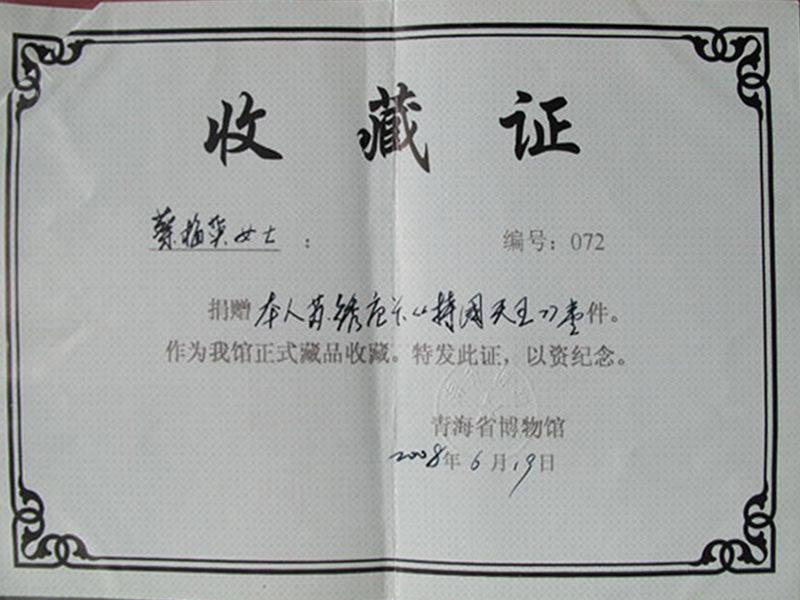 收藏证
蔡梅英女士：
编号：072
捐赠本人苏绣唐卡《持国天王》壹件。
作为我馆正式藏品收藏。特发此证，以资纪念。
青海省博物馆
2008年6月19日